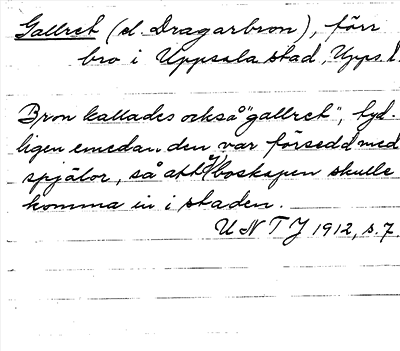 Gallret (el. Dragarbron), förr
bro i Uppsala stad, Upps. l.
Bron kallades också "gallret", tyd-
ligen emedan den var försedd med
spjälor, så att ej boskapen skulle
komma in i staden.
U N T J 1912, s. 7.